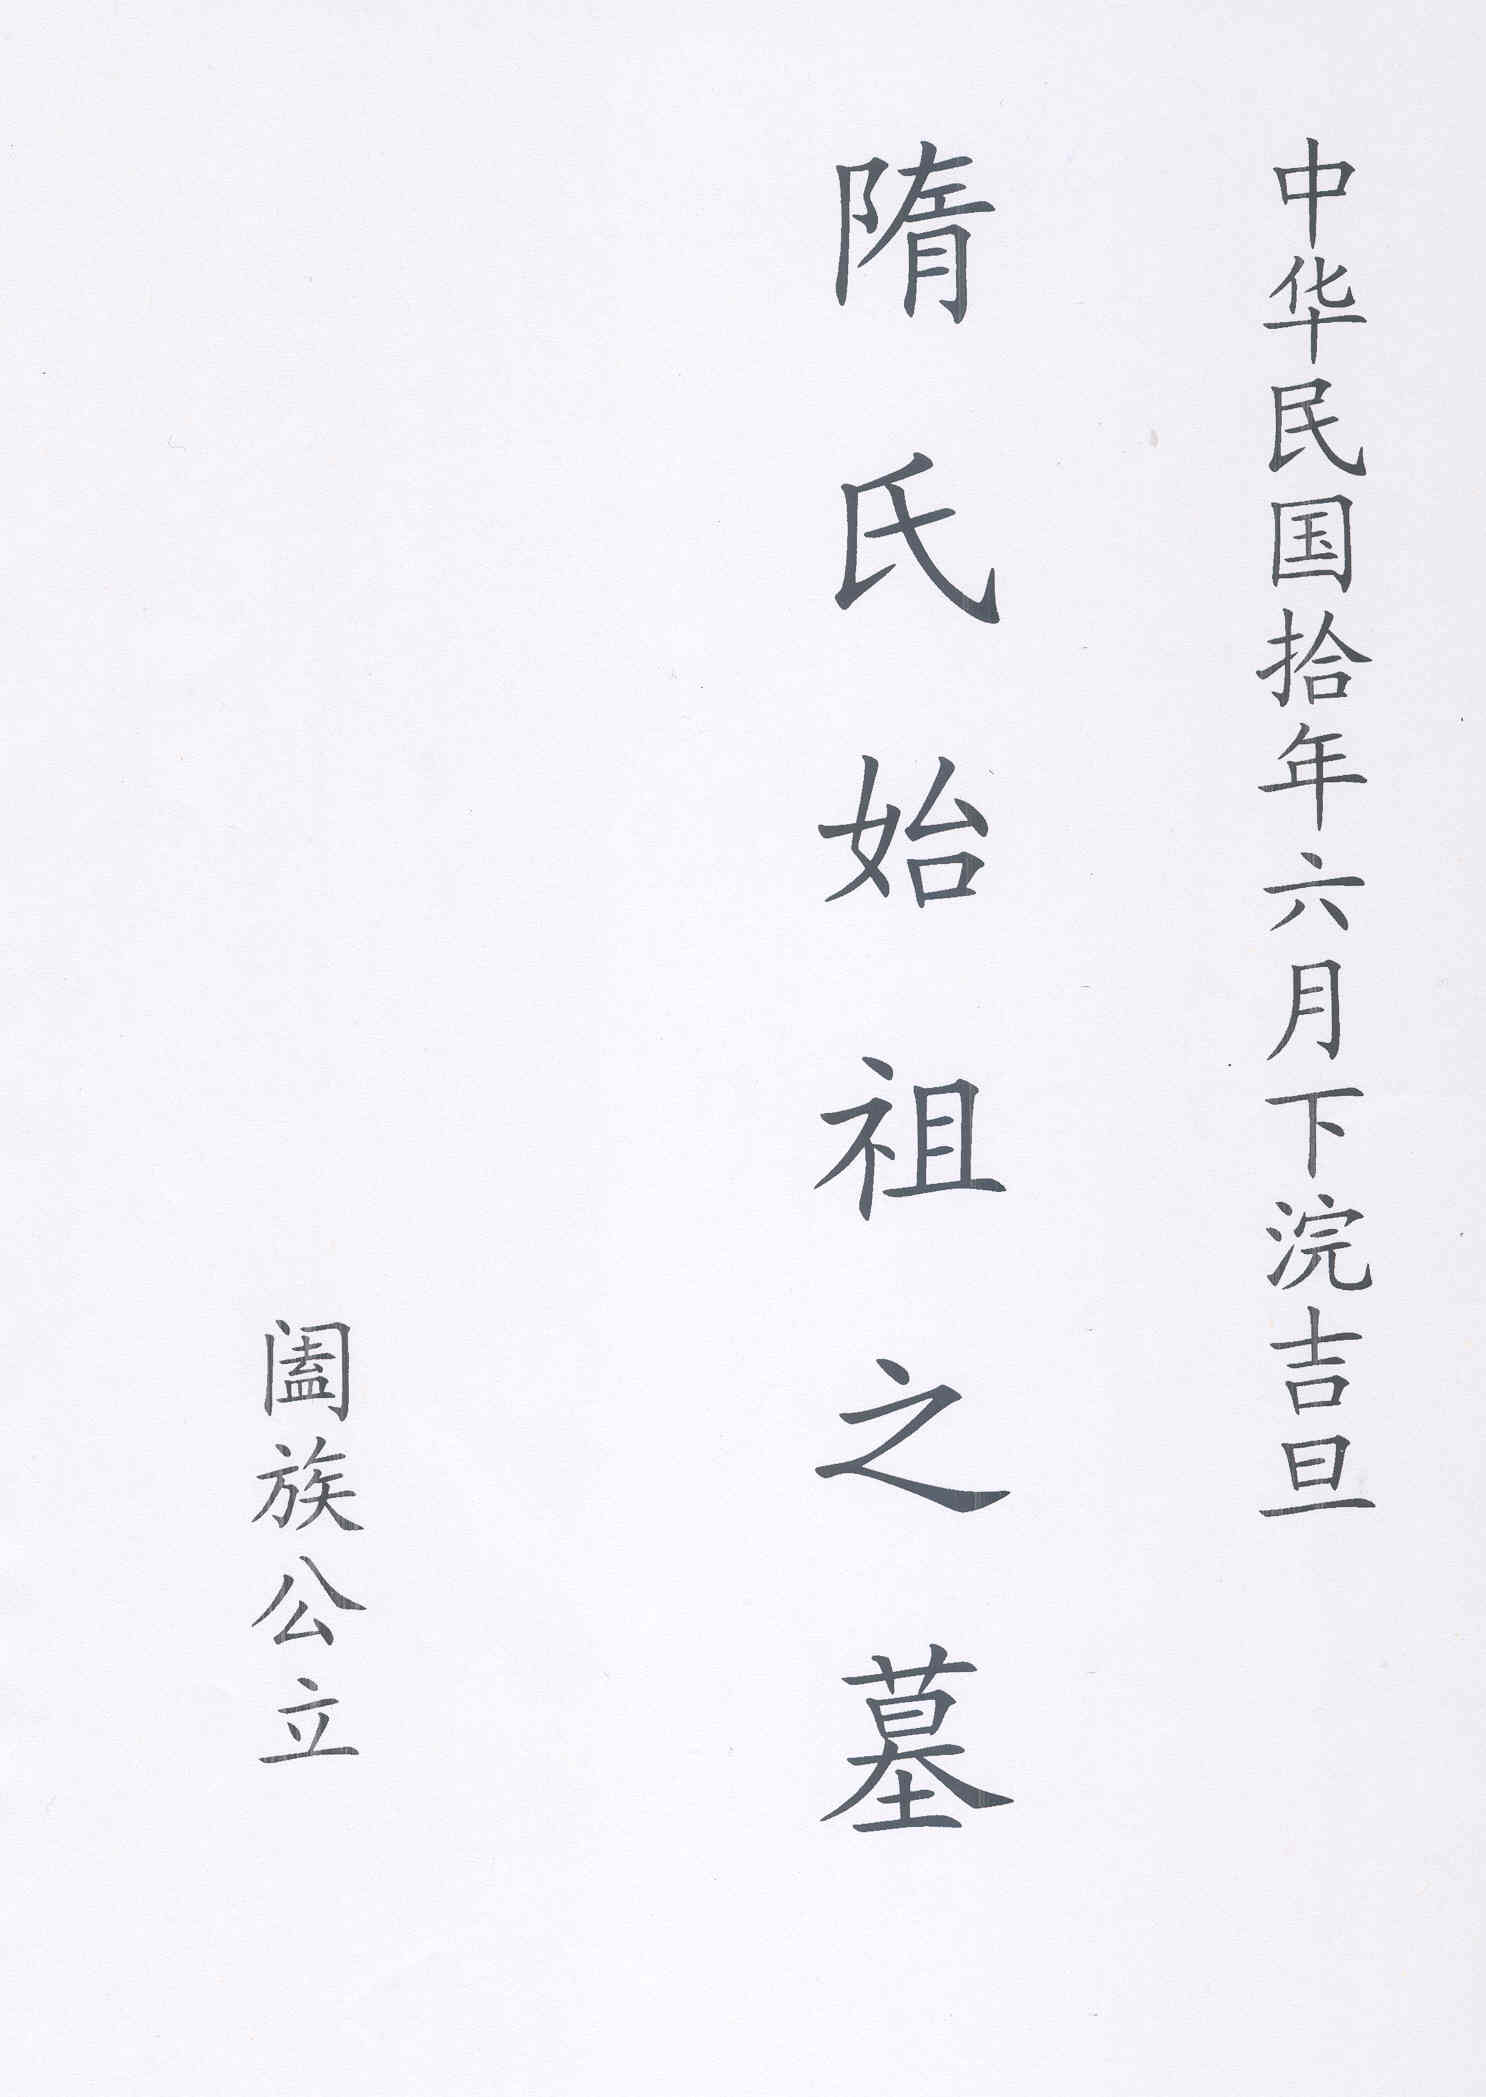 中华民国拾年六月下浣吉旦
隋氏始祖之墓
阖族公立